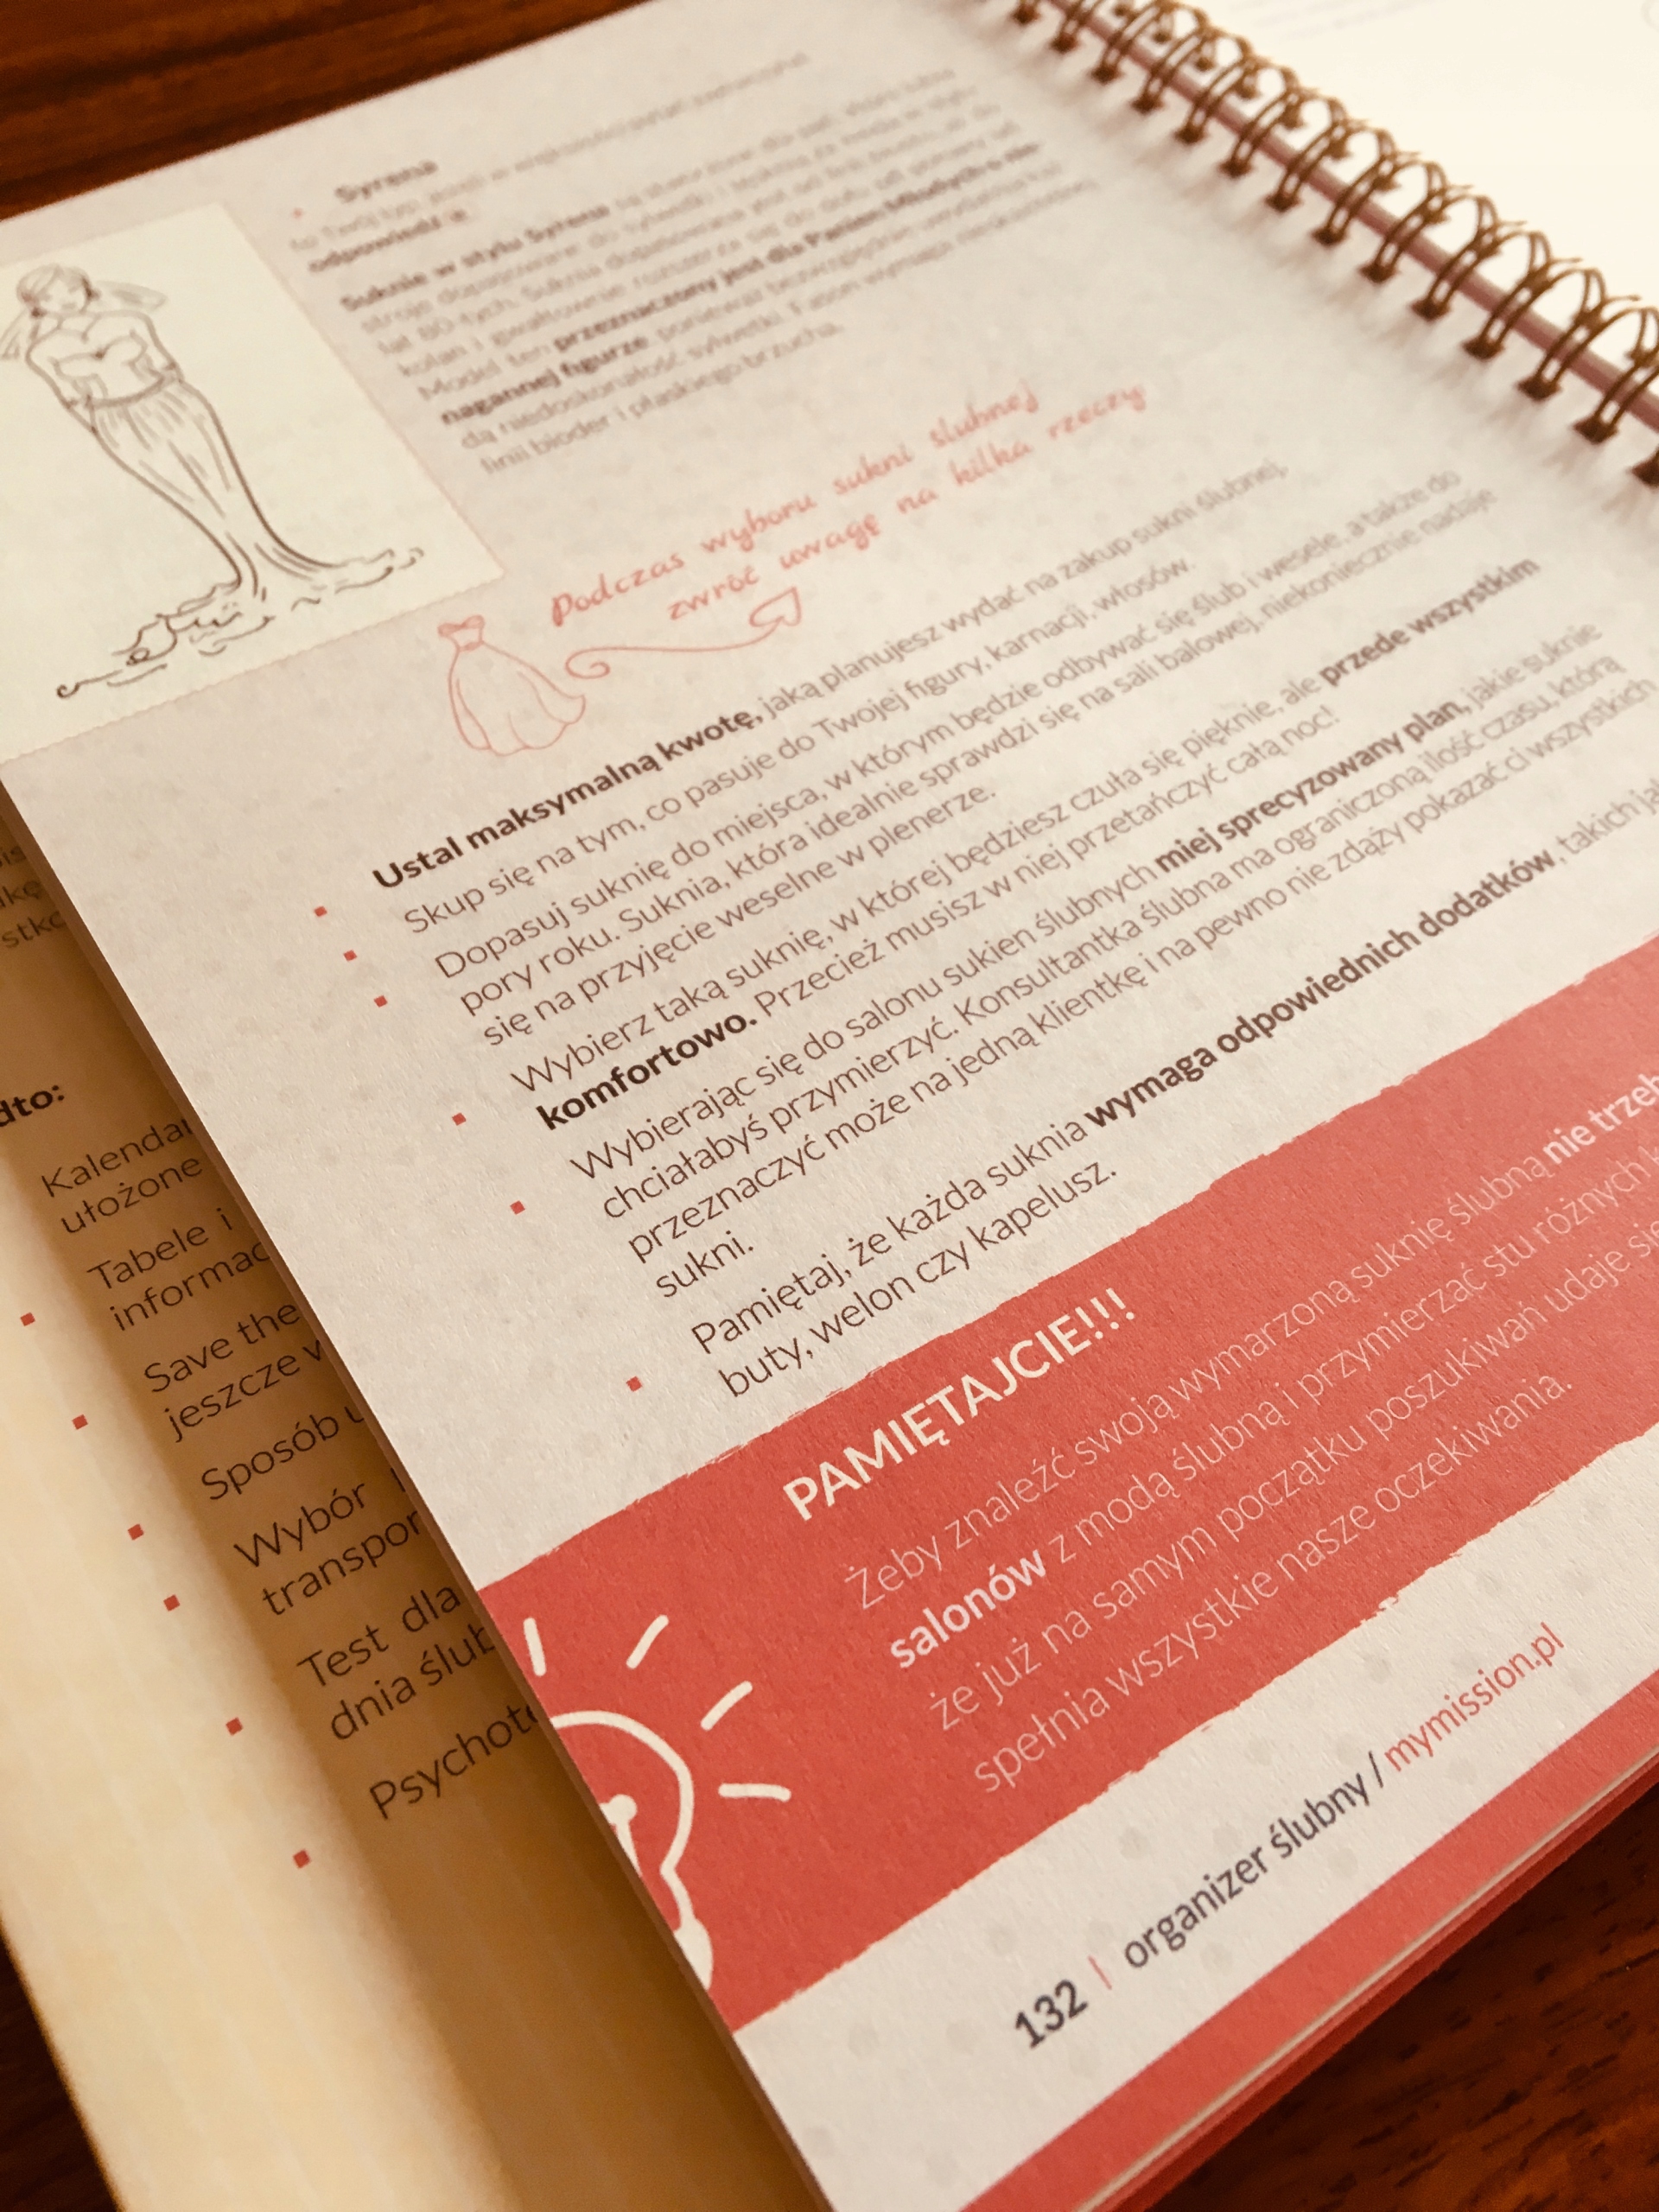 Syrena
to Twój typ, jeżeli w większości pytań zaznaczyłaś
odpowiedź e.
Suknie w stylu Syrena są stworzone dla pań, które lubią
stroje dopasowane do sylwetki i tęsknią za modą w stylu
lat 80-tych. Suknia dopasowana jest od linii biustu, aż do
kolan i gwałtownie rozszerza się do dołu od połowy ud.
Model ten przeznaczony jest dla Panien Młodych o nie-
nagannej figurze, ponieważ bezwzględnie uwidacznia każ-
dą niedoskonałość sylwetki. Fason wymaga nieskazitelnej
linii bioder i płaskiego brzucha.
Podczas wyboru sukni ślubnej
zwróć uwagę na kilka rzeczy
Ustal maksymalną kwotę, jaką planujesz wydać na zakup sukni ślubnej.
Skup się na tym, co pasuje do Twojej figury, karnacji, włosów.
Dopasuj suknię do miejsca, w którym będzie odbywać się ślub i wesele, a także do
pory roku. Suknia, która idealnie sprawdzi się na sali balowej, niekoniecznie nadaje
się na przyjęcie weselne w plenerze.
Wybierz taką suknię, w której będziesz czuła się pięknie, ale przede wszystkim
komfortowo. Przecież musisz w niej przetańczyć całą noc!
Wybierając się do salonu sukien ślubnych miej sprecyzowany plan, jakie suknie
chciałabyś przymierzyć. Konsultantka ślubna ma ograniczoną ilość czasu, którą
przeznaczyć może na jedną klientkę i na pewno nie zdąży pokazać ci wszystkich
sukni.
Pamiętaj, że każda suknia wymaga odpowiednich dodatków, takich
buty, welon czy kapelusz.
PAMIĘTAJCIE!!!
Żeby znaleźć swoją wymarzoną suknię ślubną nie
salonów z modą ślubną i przymierzać stu różnych
że już na samym początku poszukiwań udaje
spełnia wszystkie nasze oczekiwania.
132 | organizer ślubny / mymission.pl
dto:
ułożone
Tabele i
Save the
jeszcze
Sposób
Wybór
Test dla
dnia